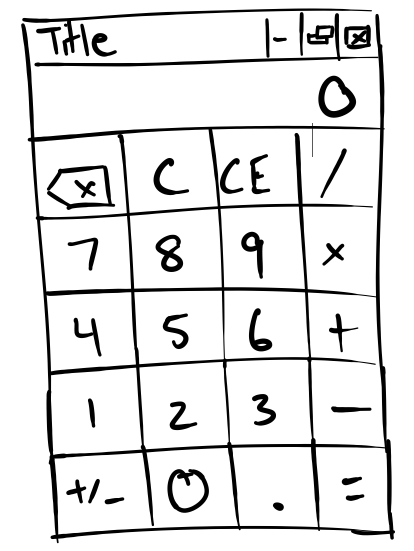 Title
0
x C CE /
7 8 9 ×
4 5 6 +
1 2 3 −
+/- 0 . =